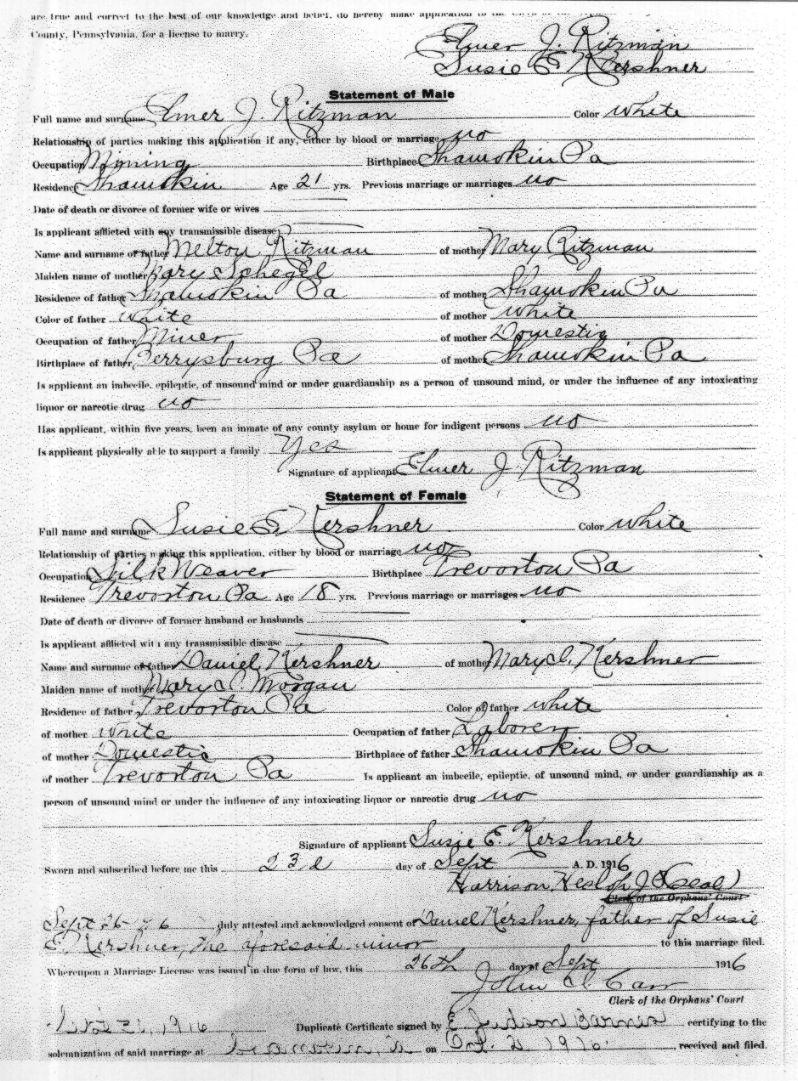 are true and correct to the best of our knowledge and belief, do hereby make application to the Clerk of the
County, Pennsylvania, for a license to marry.
Elmer J. Ritzman
Susie E. Kershner
Statement of Male
Full name and surname Elmer J. Ritzman Color White
Relationship of parties making this application if any, either by blood or marriage no
Occupation Mining Birthplace Shamokin Pa
Residence Shamokin Age 21 yrs. Previous marriage or marriages no
Date of death or divorce of former wife or wives
Is applicant afflicted with any transmissible disease
Name and surname of father Melton Ritzman of mother Mary Ritzman
Maiden name of mother Mary Schegel
Residence of father Shamokin Pa of mother Shamokin Pa
Color of father White of mother White
Occupation of father Miner of mother Domestic
Birthplace of father Berrysburg Pa of mother Shamokin Pa
Is applicant an imbecile, epileptic, of unsound mind or under guardianship as a person of unsound mind, or under the influence of any intoxicating
liquor or narcotic drug no
Has applicant, within five years, been an inmate of any county asylum or home for indigent persons no
Is applicant physically able to support a family Yes
Signature of applicant Elmer J. Ritzman
Statement of Female
Full name and surname Susie E. Kershner Color White
Relationship of parties making this application, either by blood or marriage no
Occupation Silk Weaver Birthplace Trevorton Pa
Residence Trevorton Pa Age 18 yrs. Previous marriage or marriages no
Date of death or divorce of former husband or husbands
Is applicant afflicted with any transmissible disease
Name and surname of father Daniel Kershner of mother Mary C. Kershner
Maiden name of mother Mary C. Morgan
Residence of father Trevorton Pa Color of father White
of mother White Occupation of father Laborer
of mother Domestic Birthplace of father Shamokin Pa
of mother Trevorton Pa Is applicant an imbecile, epileptic, of unsound mind, or under guardianship as a
person of unsound mind or under the influence of any intoxicating liquor or narcotic drug no
Signature of applicant Susie E. Kershner
Sworn and subscribed before me this 23d day of Sept A. D. 1916
Harrison Heslop J (Seal)
Clerk of the Orphans' Court
Sept 26 duly attested and acknowledged consent of Daniel Kershner, father of Susie
E. Kershner, the aforesaid minor to this marriage filed.
Whereupon a Marriage License was issued in due form of law, this 26th day of Sept 1916
John I. Carr
Clerk of the Orphans' Court
1916 Duplicate Certificate signed by E. Judson Barnes certifying to the
solemnization of said marriage at on Oct. 2 1916 received and filed.